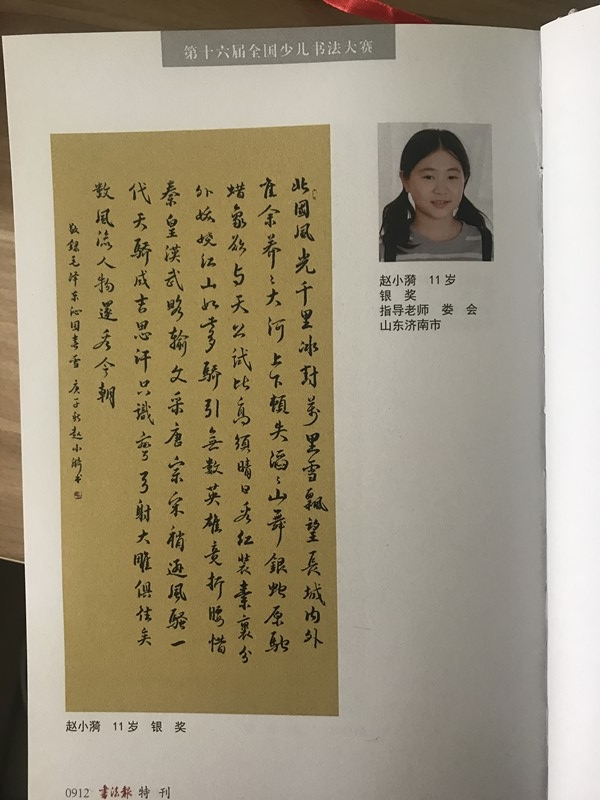 第十六届全国少儿书法大赛
北國風光千里冰封萬里雪飄望長城内外
惟余莽〻大河上下頓失滔〻山舞銀蛇原馳
蜡象欲与天公試比高須晴日看红装素裹分
外妖娆江山如此多驕引無数英雄竟折腰惜
秦皇漢武略输文采唐宗宋稍逊風騷一
代天驕成吉思汗只識弯弓射大雕俱往矣
数風流人物還看今朝
敬録毛泽东沁园春雪 庚子秋赵小漪书
赵小漪 11岁
银 奖
指导老师 娄 会
山东济南市
赵小漪 11岁 银 奖
0912 書法報 特刊